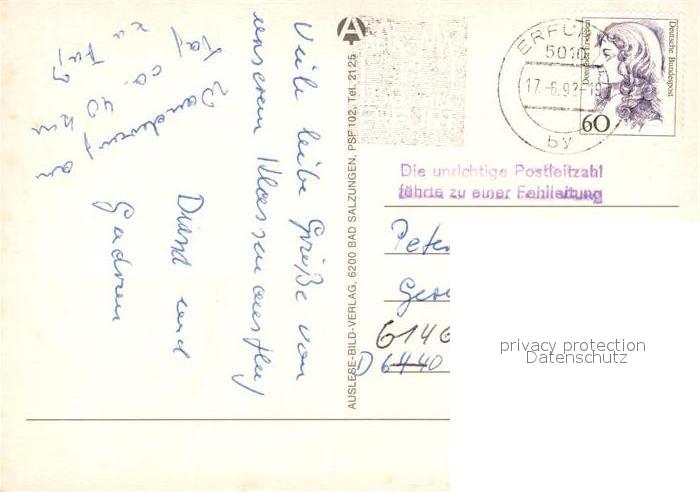 Viele liebe Grüße von
unserem Klassenausflug
Wandern an
Tag ca. 40 km
zu Fuß
Diand und
Gudrun
AUSLESE-BILD-VERLAG, 6200 BAD SALZUNGEN, PSF 102, Tel. 2125
A
ERFURT
5010
17.-6.92-19
by
Deutsche Bundespost
60
Die unrichtige Postleitzahl
führte zu einer Fehlleitung
Peter
6146
D 6440
privacy protection
Datenschutz